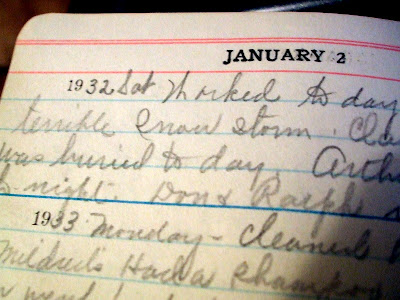 JANUARY 2
1932 Sat Worked to day
terrible snow storm. Cla
was buried to day. Arth
night. Don & Ralph
1933 Monday - Cleaned
Mildred's Had a shampoo